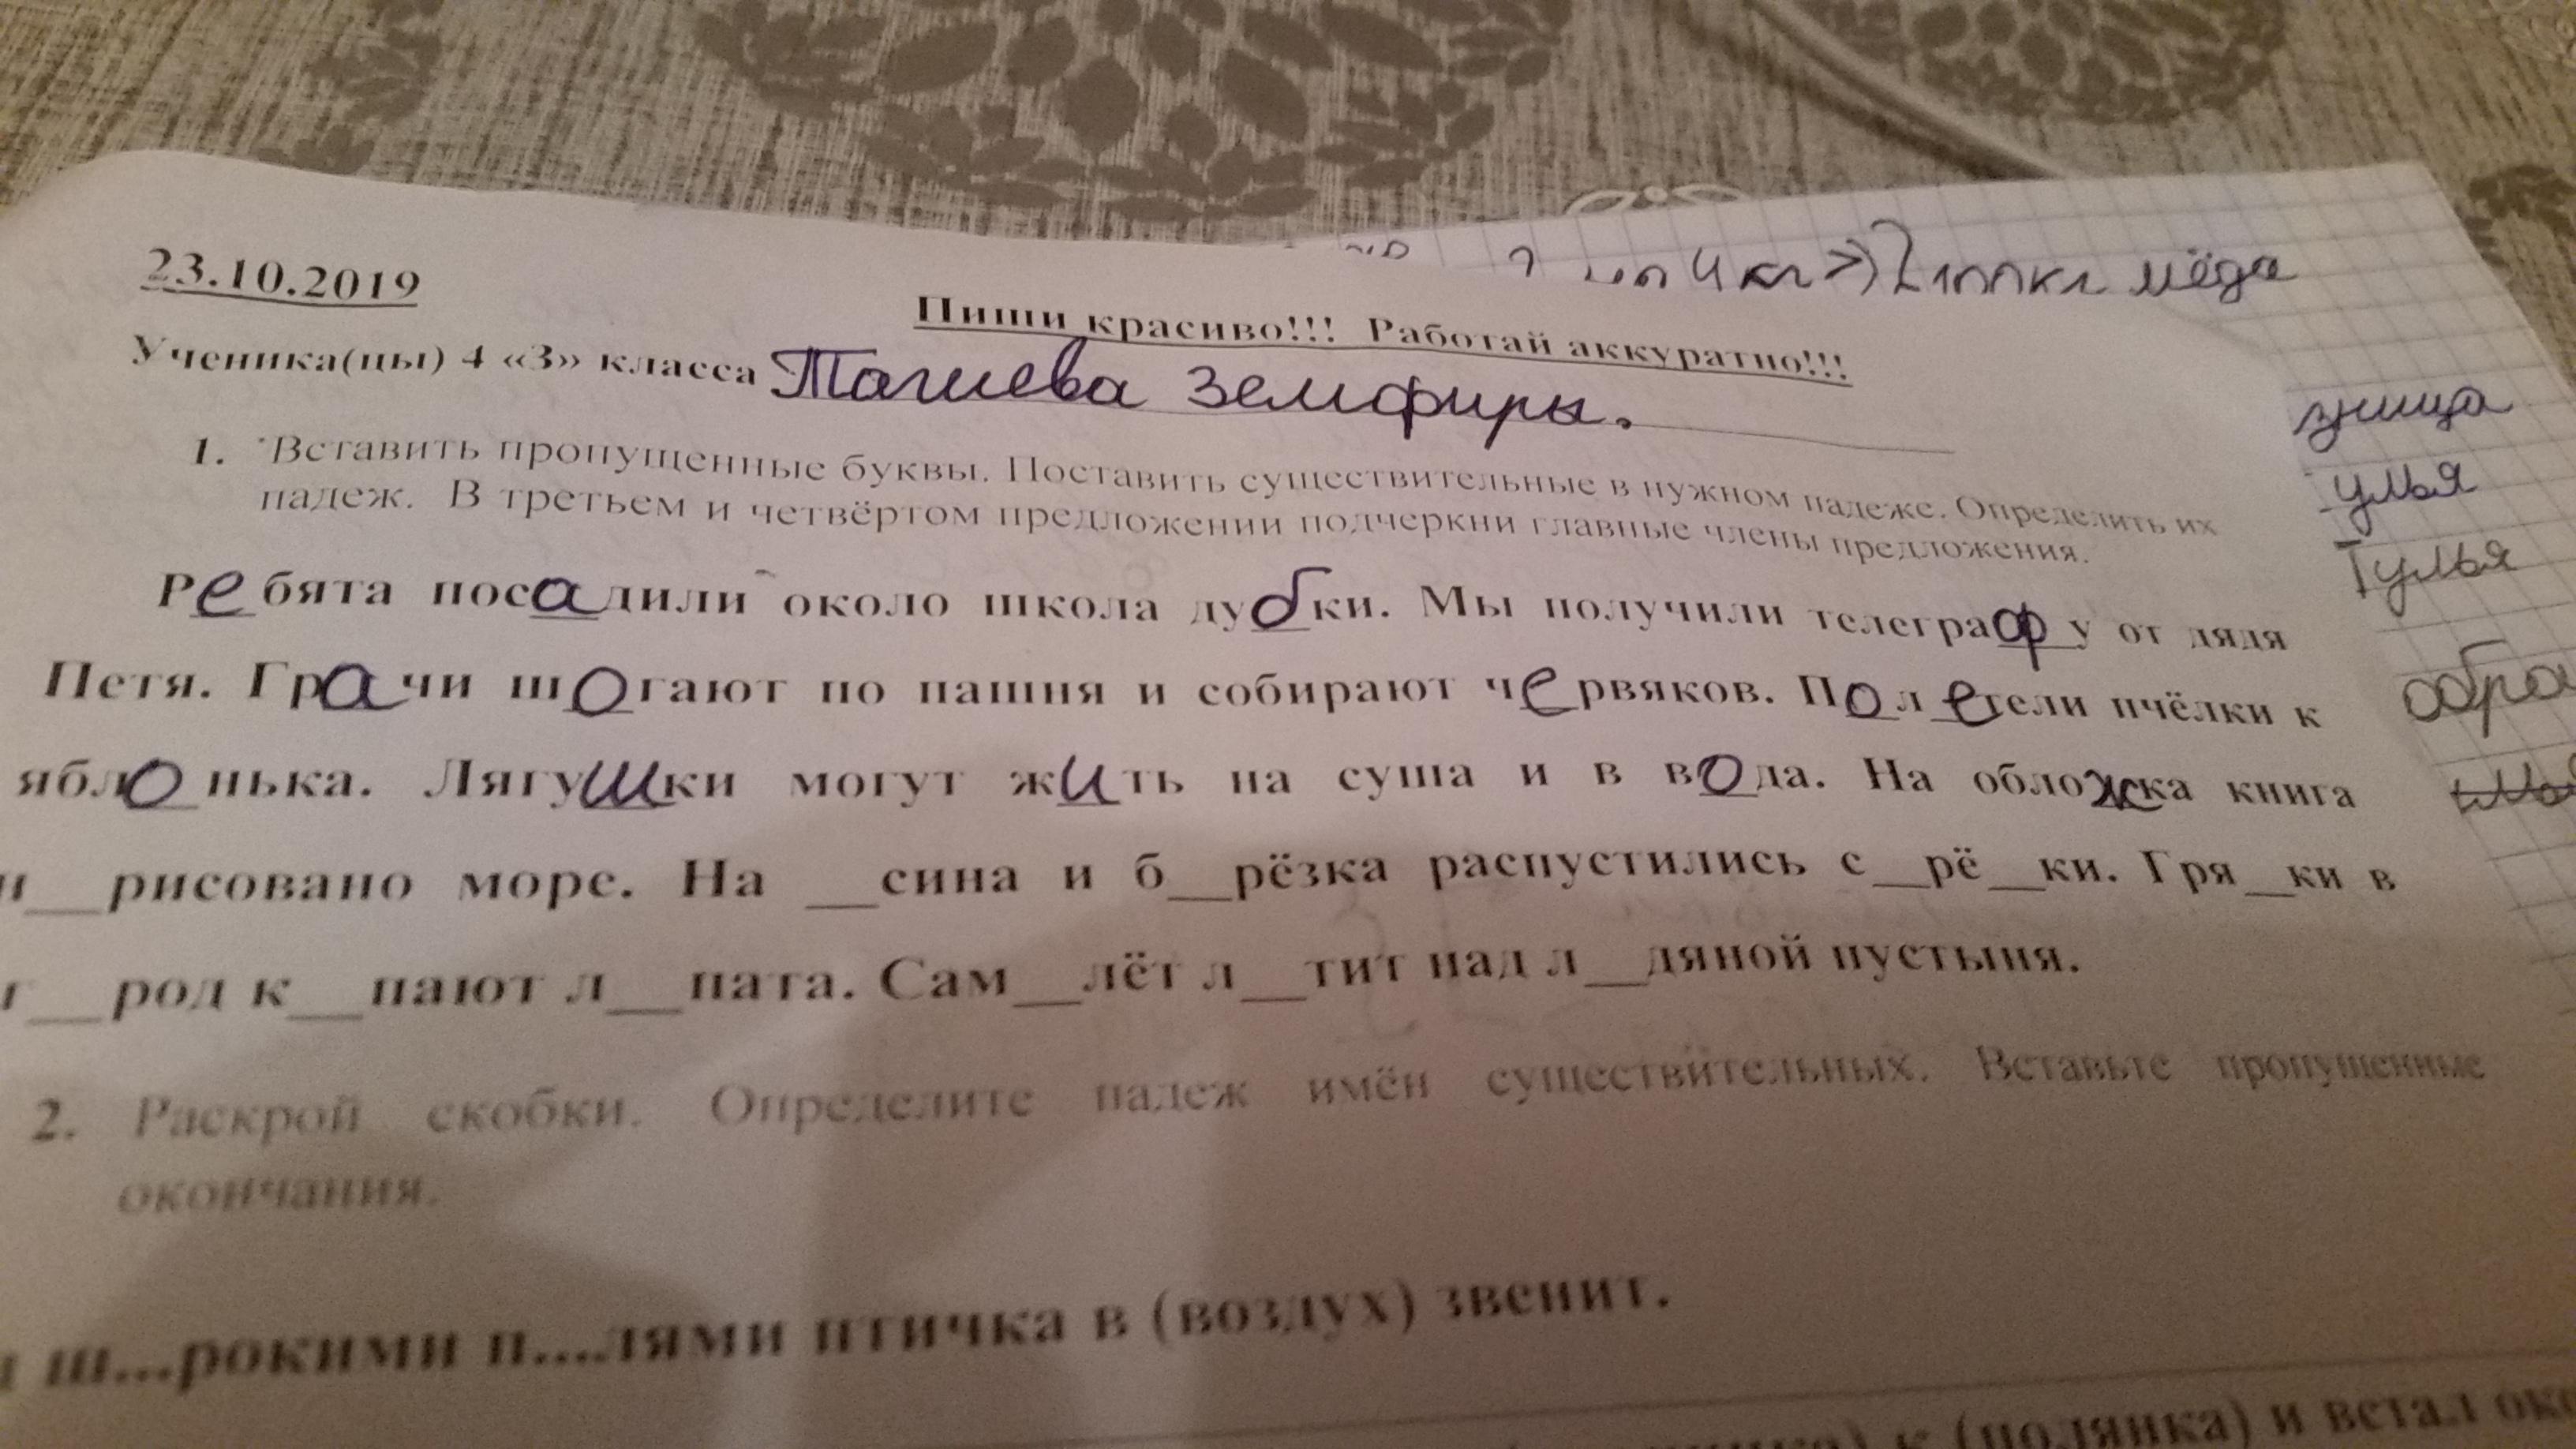 23.10.2019
Пиши красиво!!! Работай аккуратно!!!
Ученика(цы) 4 «З» класса Тагиева Земфиры.
1. Вставить пропущенные буквы. Поставить существительные в нужном падеже. Определить их
падеж. В третьем и четвёртом предложении подчеркни главные члены предложения.
Ребята посадили около школа дубки. Мы получили телеграфу от дядя
Петя. Грачи шогают по пашня и собирают червяков. Полетели пчёлки к
яблонька. Лягушки могут жить на суша и в вода. На обложка книга
н__рисовано море. На __сина и б__рёзка распустились с__рё__ки. Гря__ки в
г__род к__пают л__пата. Сам__лёт л__тит над л__дяной пустыня.
2. Раскрой скобки. Определите падеж имён существительных. Вставьте пропущенные
окончания.
ш...рокими п....лями птичка в (воздух) звенит.
к (полянка) и встал
мёда
улья
улья